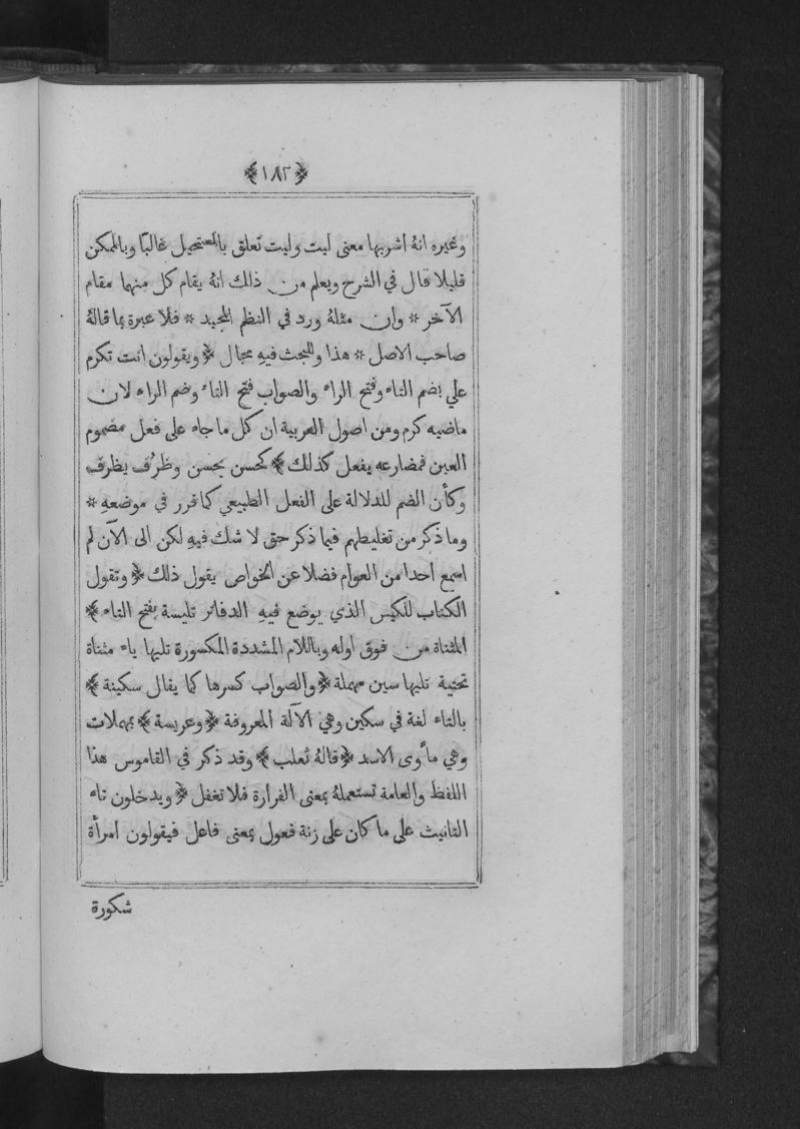 ﴿١٨٢﴾
وغيره انهُ اشربها معنى ليت وليت تعلق بالمستحيل غالبًا وبالممكن
قليلا قال في الشرح ويعلم من ذلك انهُ يقام كل منهما مقام
الآخر * وان مثلهُ ورد في النظم المجيد * فلا عبرة بما قالهُ
صاحب الاصل * هذا وللبحث فيهِ مجال ﴿ ويقولون انت تكرم
علي بضم التاء وفتح الراء والصواب فتح التاء وضم الراء لان
ماضيه كرم ومن اصول العربية ان كل ما جاء على فعل مضموم
العين فمضارعه يفعل كذلك ﴾ كحسن يحسن وظرُف يظرف
وكأن الضم للدلالة على الفعل الطبيعي كما قرر في موضعهِ *
وما ذكر من تغليطهم فيما ذكر حق لا شك فيهِ لكن الى الآن لم
اسمع احدا من العوام فضلا عن الخواص يقول ذلك ﴿ وتقول
الكتاب للكيس الذي يوضع فيهِ الدفاتر تليسة بفتح التاء ﴾
المثناة من فوق اوله وباللام المشددة المكسورة تليها ياء مثناة
تحتية تليها سين مهملة ﴿ والصواب كسرها كما يقال سكينة ﴾
بالتاء لغة في سكين وهي الآلة المعروفة ﴿ وعريسة ﴾ بمهملات
وهي مأوى الاسد ﴿ قالهُ ثعلب ﴾ وقد ذكر في القاموس هذا
اللفظ والعامة تستعملهُ بمعنى الغرارة فلا تغفل ﴿ ويدخلون تاء
التانيث على ما كان على زنة فعول بمعنى فاعل فيقولون امرأة
شكورة